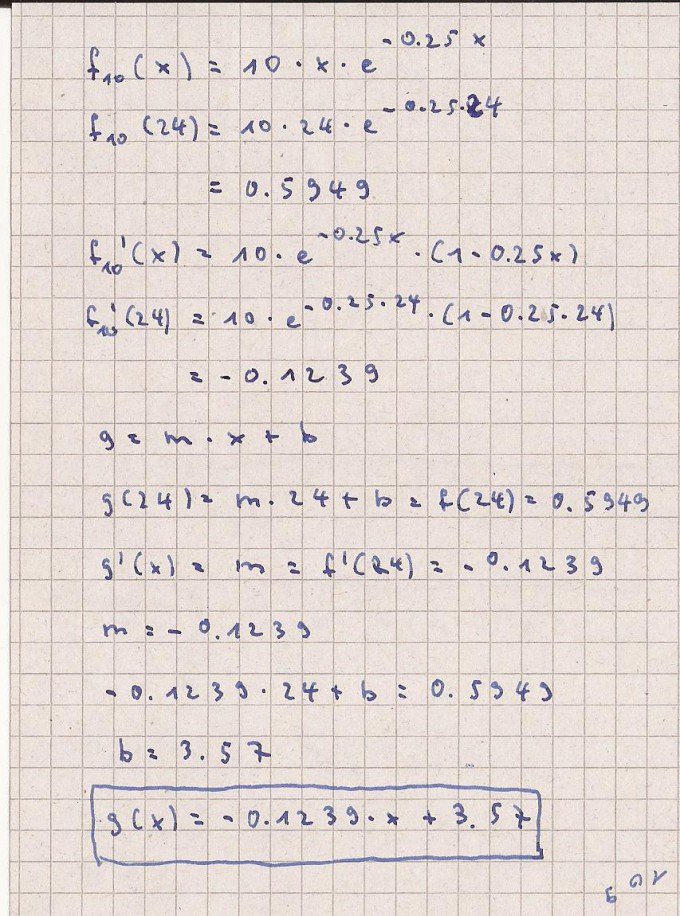 f₁₀(x) = 10 · x · e^-0.25x
f₁₀(24) = 10 · 24 · e^-0.25·24
= 0.5949
f₁₀'(x) = 10 · e^-0.25x · (1 - 0.25x)
f₁₀'(24) = 10 · e^-0.25·24 · (1 - 0.25·24)
= -0.1239
g = m · x + b
g(24) = m · 24 + b = f(24) = 0.5949
g'(x) = m = f'(24) = -0.1239
m = -0.1239
-0.1239 · 24 + b = 0.5949
b = 3.57
g(x) = -0.1239 · x + 3.57